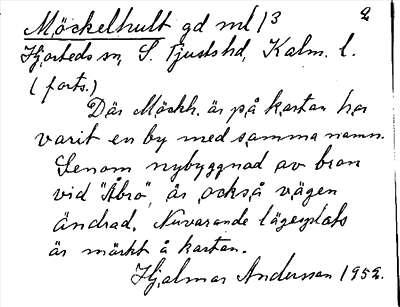 Möckelhult gd ml/3 2
Hjorteds sn, S. Tjusts hd, Kalm. l.
(forts.)
Där Möckh. är på kartan har
varit en by med samma namn.
Genom nybyggnad av bron
vid "Åbro", är också vägen
ändrad. Nuvarande lägeplats
är märkt å kartan.
Hjalmar Andersson 1952.